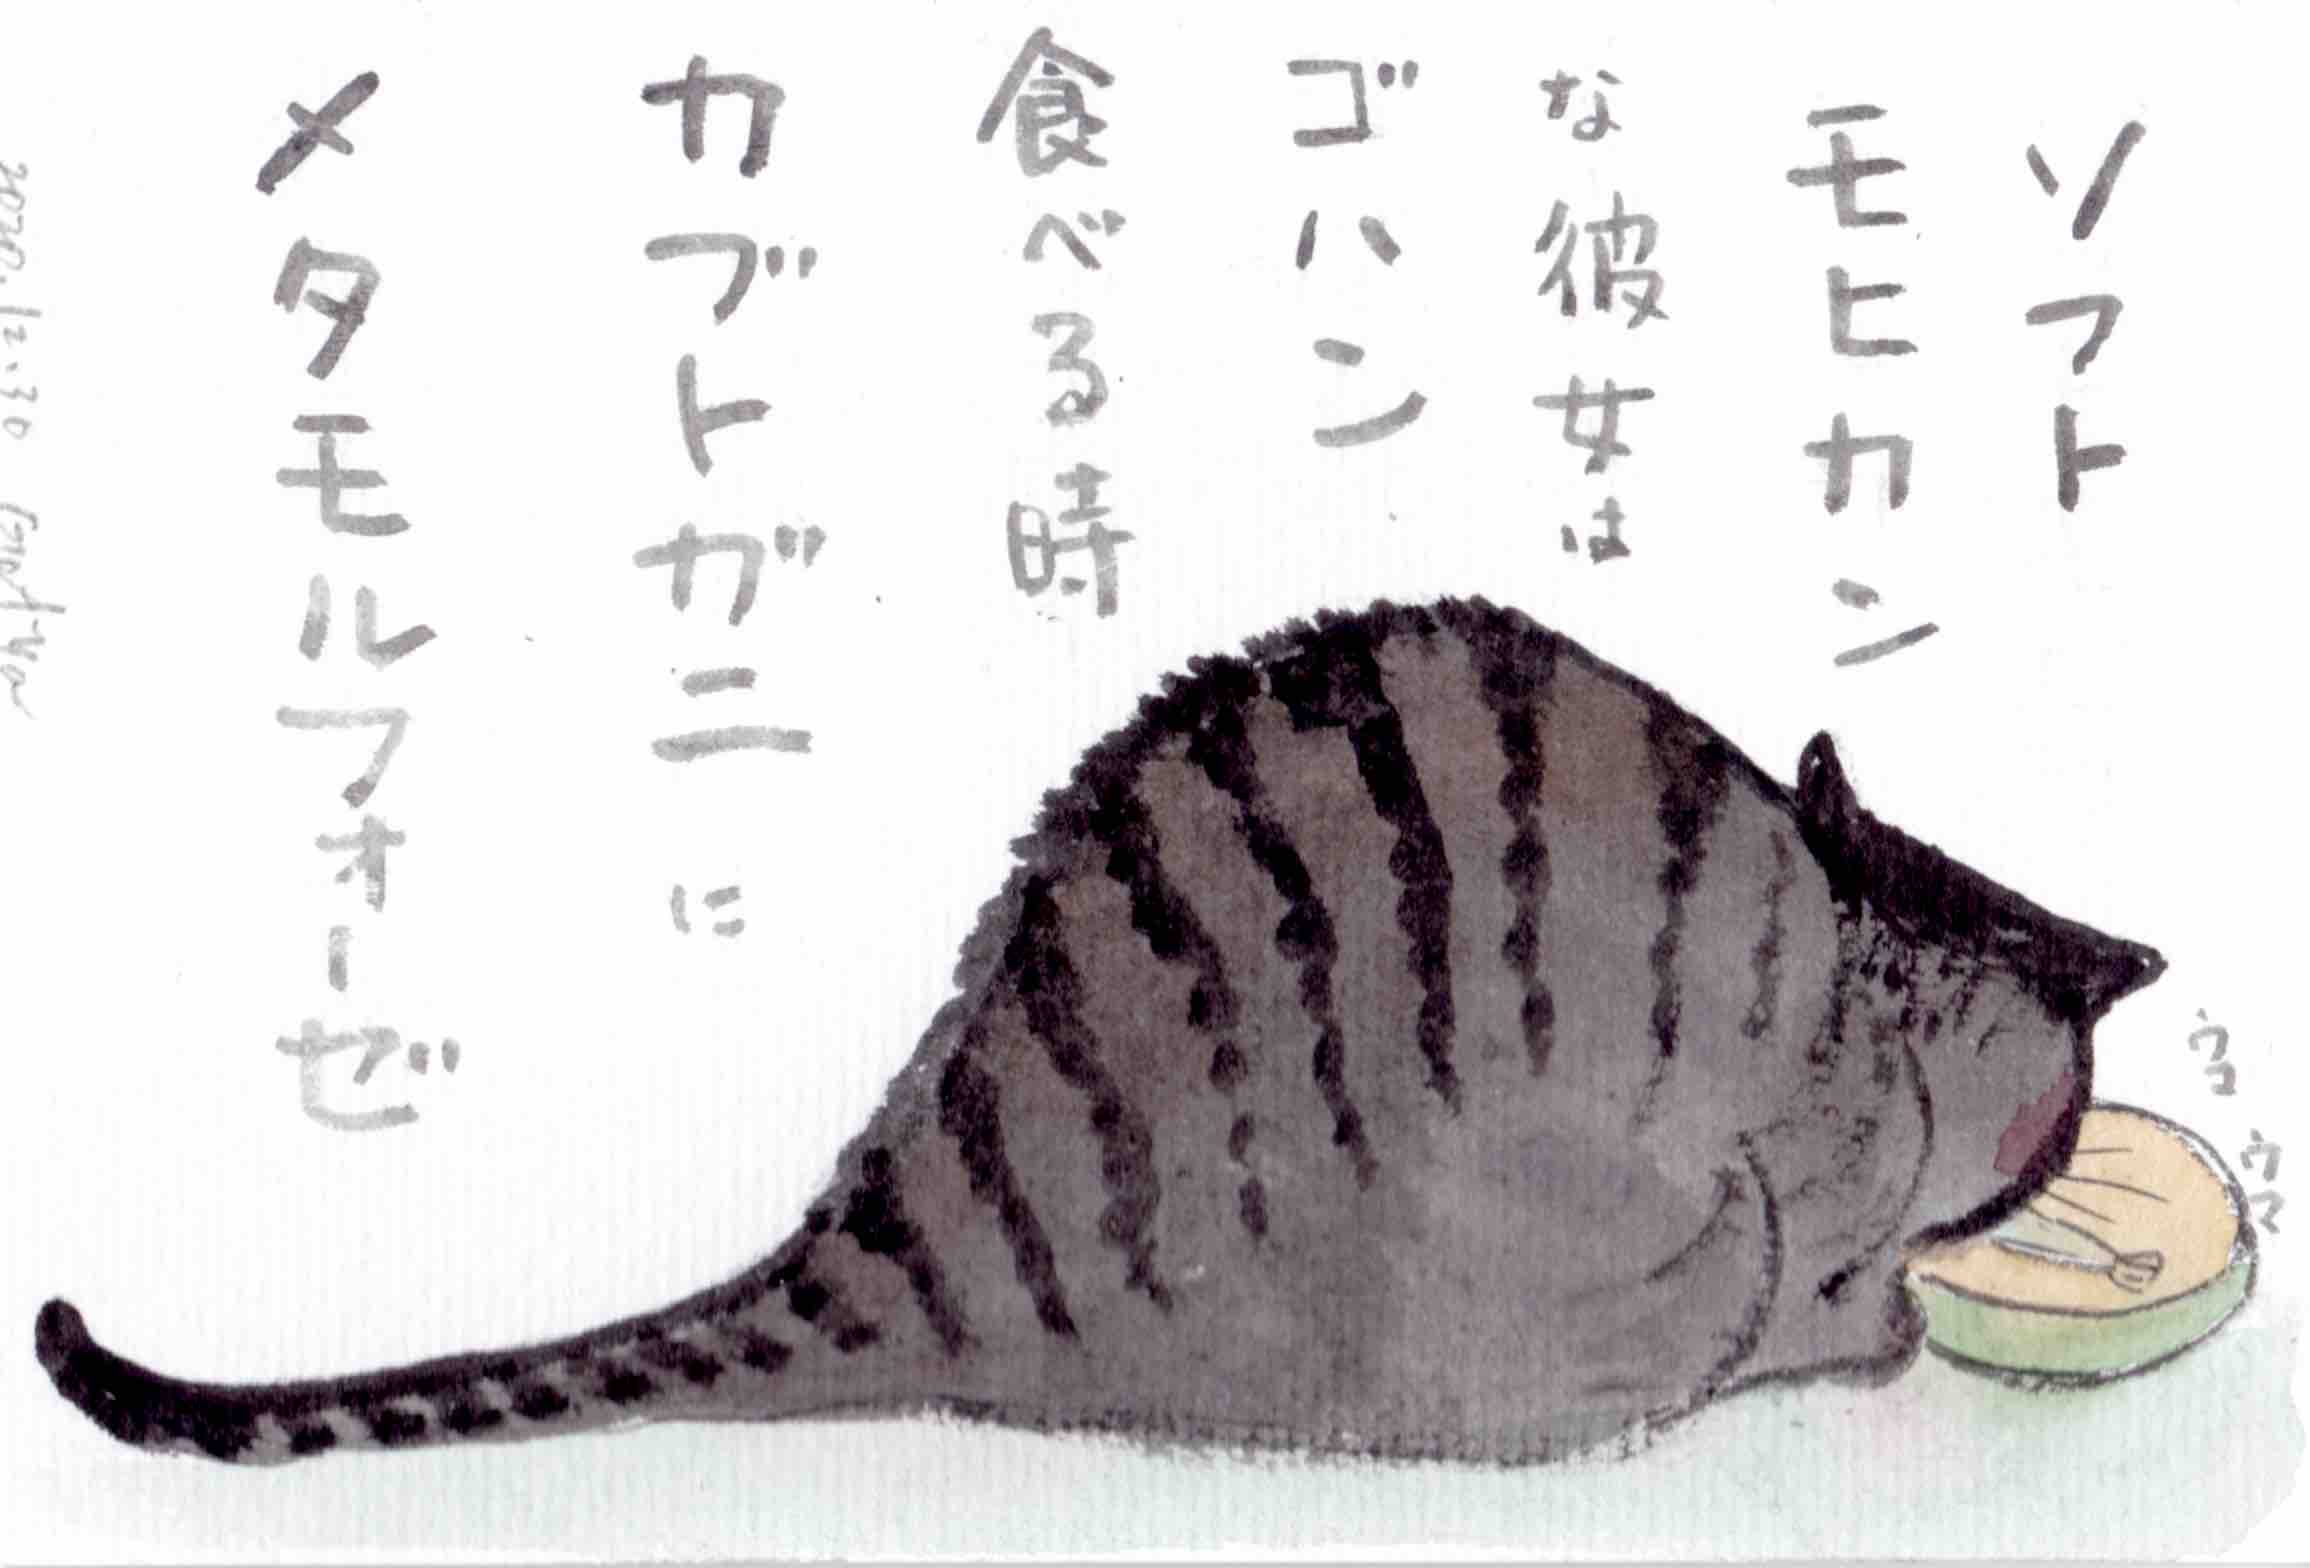 ソフト
モヒカン
な彼女は
ゴハン
食べる時
カブトガニに
メタモルフォーゼ
ウマ
2020.12.30